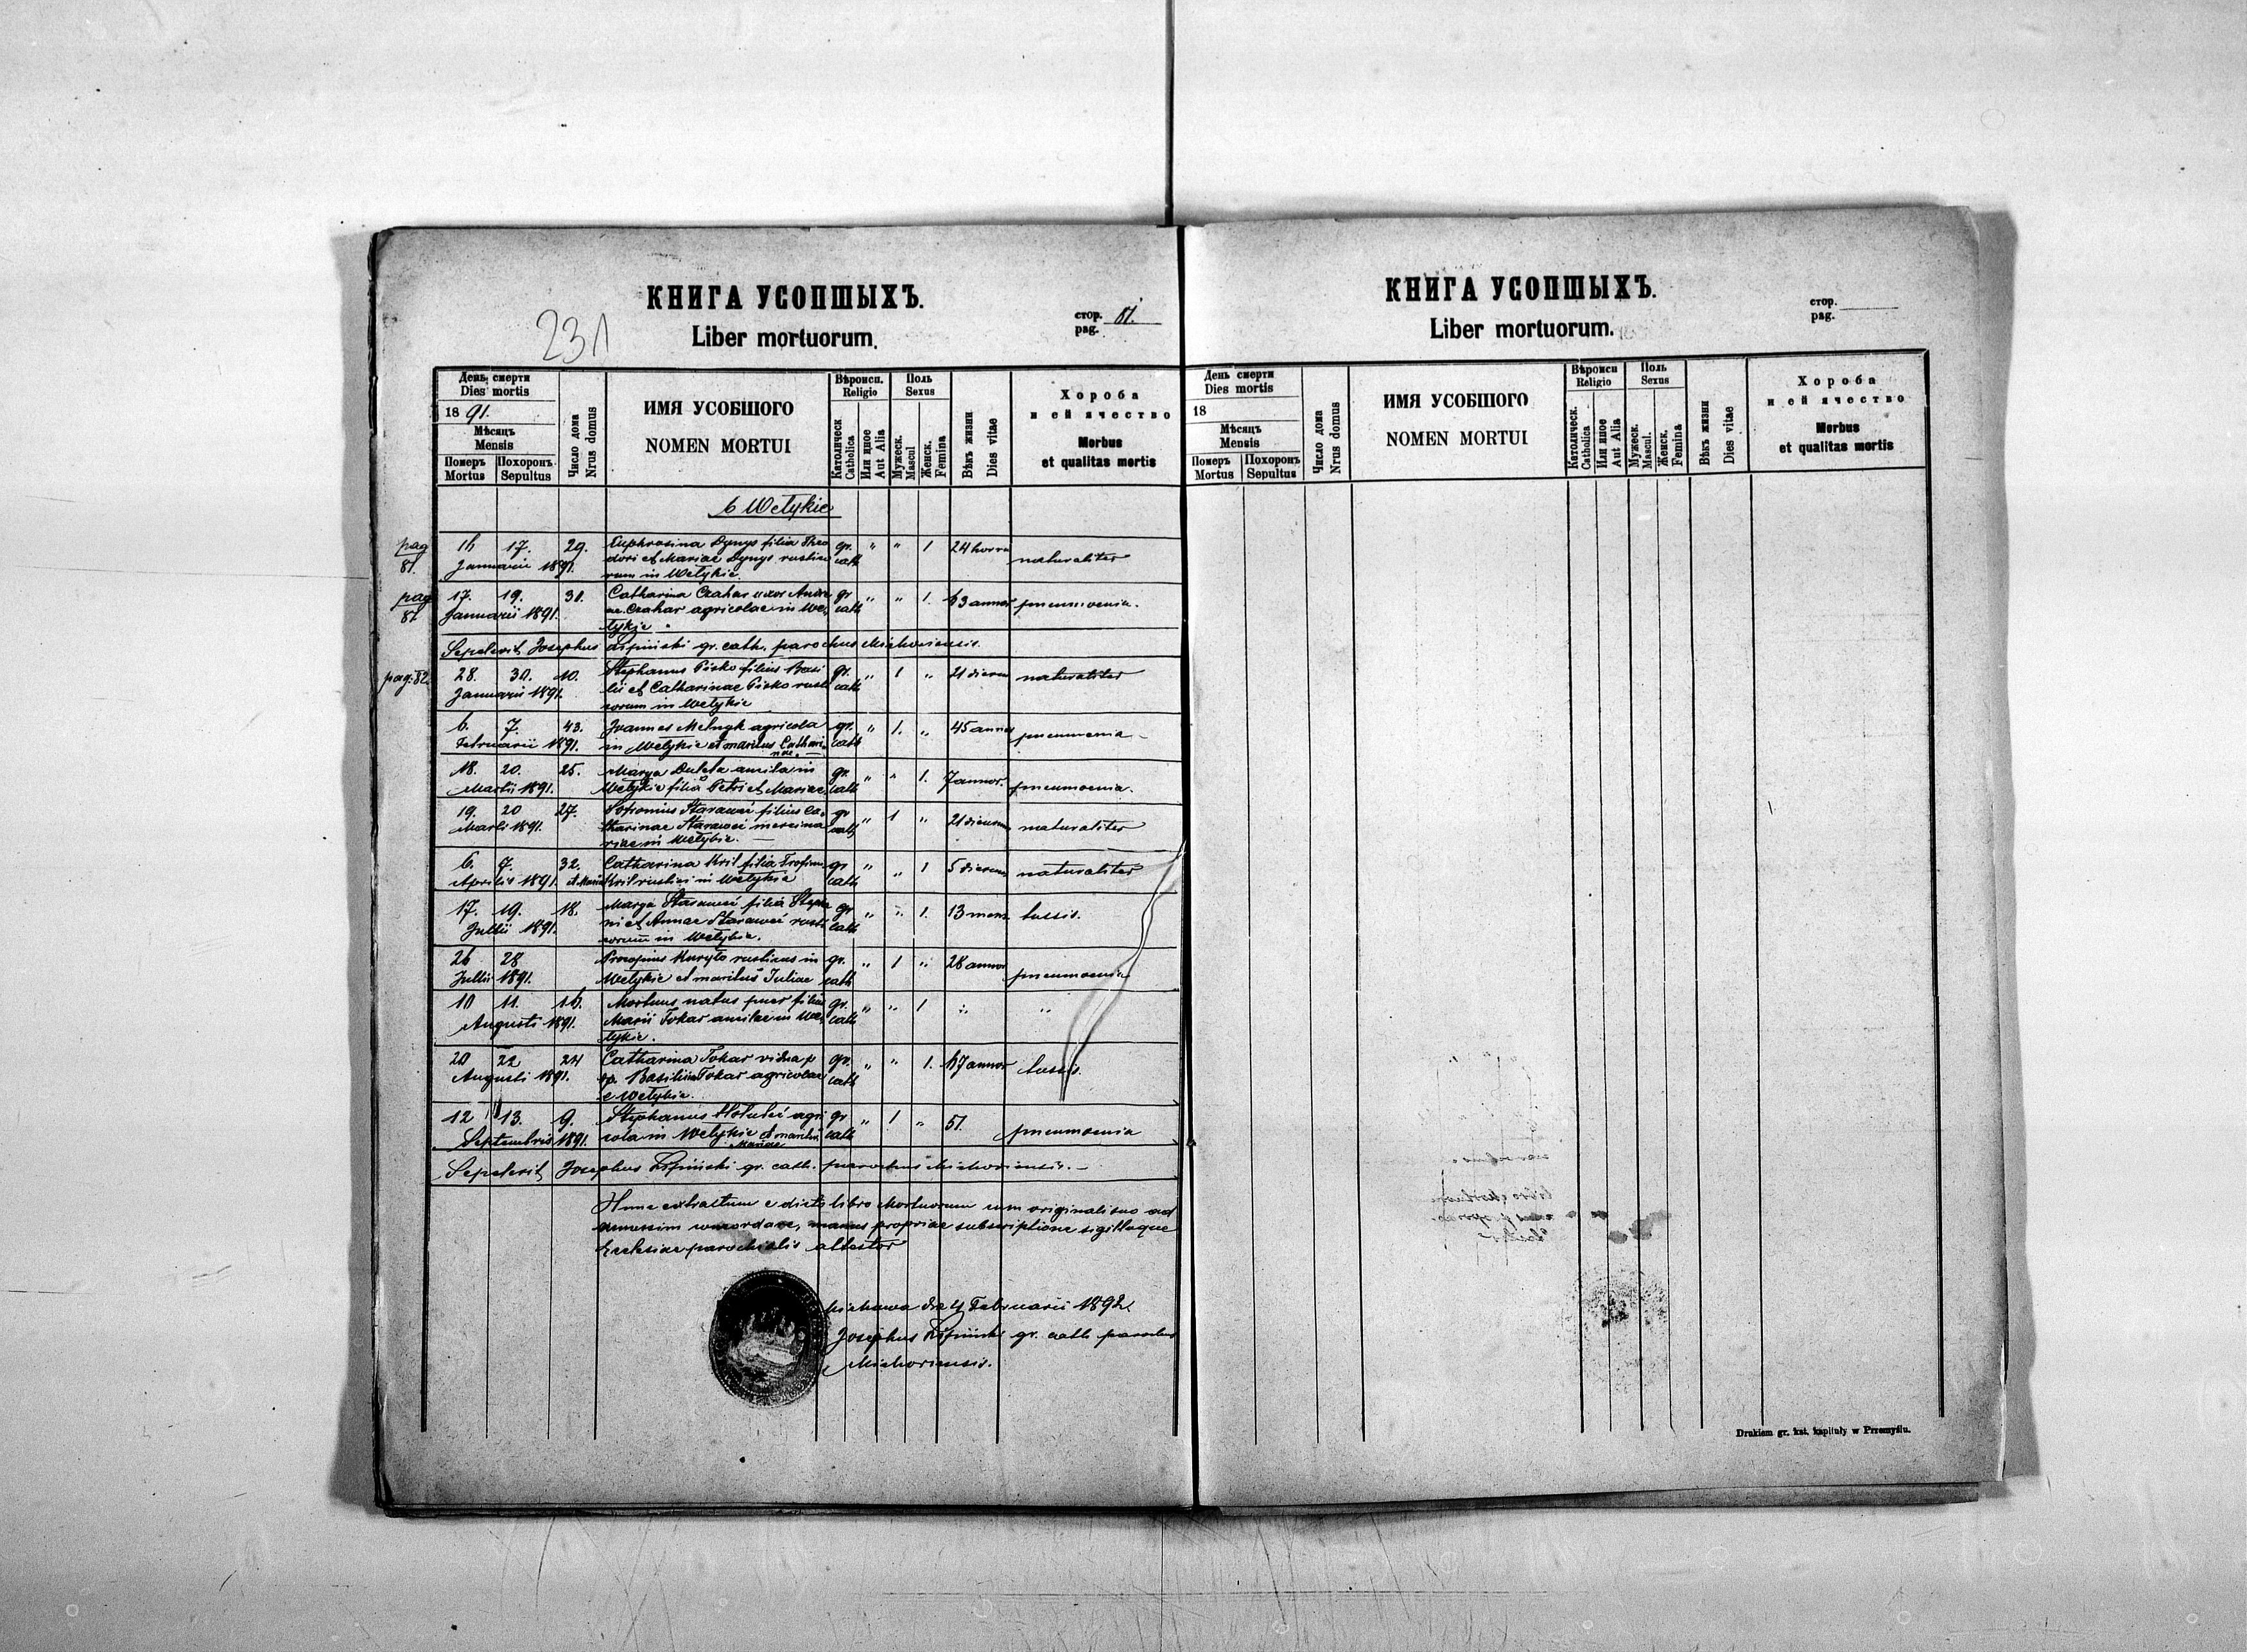 КНИГА УСОПШЫХЪ.
Liber mortuorum.
231
стор. pag. 81.
День смерти
Dies mortis
1891.
Мѣсяцъ
Mensis
Померъ Mortus
Похоронъ Sepultus
Число дома Nrus domus
ИМЯ УСОБШОГО
NOMEN MORTUI
Вѣроисп. Religio
Католическ. Catholica
Или иное Aut Alia
Поль Sexus
Мужеск. Mascul
Женск. Femina
Вѣкъ жизни Dies vitae
Хороба
и ей ячество
Morbus
et qualitas mortis
6 Wełykie
pag 81. 16 17. 29. Euphrosina Dynys filia Theo gr. " " 1 24 horar
Januarii 1891. dori et Mariae Dynys rustico cath naturaliter
rum in Wełykie
pag 81 17. 19. 31. Catharina Czahar uxor Andre gr " " 1. 63 annor pneumoenia.
Januarii 1891. ae Czahar agricolae in We cath
łykie
Sepelivit Josephus Lipiński gr. cath. parochus Michoviensis.
pag: 82. 28. 30. 10. Stephanus Pisko filius Basi gr. " 1 " 21 dierum naturaliter
Januarii 1891. lii et Catharinae Pisko rusti cath
corum in Wełykie
6. 7. 43. Joannes Melnyk agricola gr. " 1. " 45 annor
Februarii 1891. in Wełykie et maritus Cathari cath pneumenia
nae.
18. 20. 25. Marya in gr. " " 1. 7 annor.
Martii 1891. Wełykie filia Petri et Mariae cath pneumoenia.
19. 20 27. Sofronius Starawei filius Ca gr " 1 " 21 dierum naturaliter
Marti 1891. tharinae Starawei cath
in Wełykie.
6. 7. 32. Catharina Kril filia gr " " 1 5 dierum naturaliter
Aprilis 1891. et Maria Kril rustici in Wełykie cath
17. 19. 18. Marya Starawei filia Stepha gr " " 1. 13 mens. tussis.
Jullii 1891. ni et Annae Starawei rusti cath
corum in Wełykie.
26 28 Procopius Kuryło rusticus in gr. " 1 " 28 annor
Jullii 1891. Wełykie et maritus Juliae cath pneumoenia
10 11. 16. Mortuus natus puer filius gr. " " 1 " "
Augusti 1891. Marii Tokar in We cath
łykie.
20 22 24 Catharina Tokar vidua p gr. " " 1. 67 annor tussis.
Augusti 1891. Basilii Tokar agricolae cath
e Wełykie.
12 13. 9. Stephanus agri gr " 1 " 51.
Septembris 1891. cola in Wełykie et maritus cath pneumoenia
Mariae
Sepelivit Josephus Lipiński gr. cath. parochus Michoviensis.
Hunc extractum e dicto libro Mortuorum cum originali suo ad
amussim concordare, manus propriae subscriptione sigilloque
Ecclesiae parochialis attestor
Michowa die 4 Februarii 1892.
Josephus Lipiński gr. cath parochus
Michoviensis.
КНИГА УСОПШЫХЪ.
Liber mortuorum.
стор. pag.
День смерти
Dies mortis
18
Мѣсяцъ
Mensis
Померъ Mortus
Похоронъ Sepultus
Число дома Nrus domus
ИМЯ УСОБШОГО
NOMEN MORTUI
Вѣроисп Religio
Католическ. Catholica
Или иное Aut Alia
Поль Sexus
Мужеск. Mascul.
Женск. Femina
Вѣкъ жизни Dies vitae
Хороба
и ей ячество
Morbus
et qualitas mortis
Drukiem gr. kat. kapituły w Przemyślu.